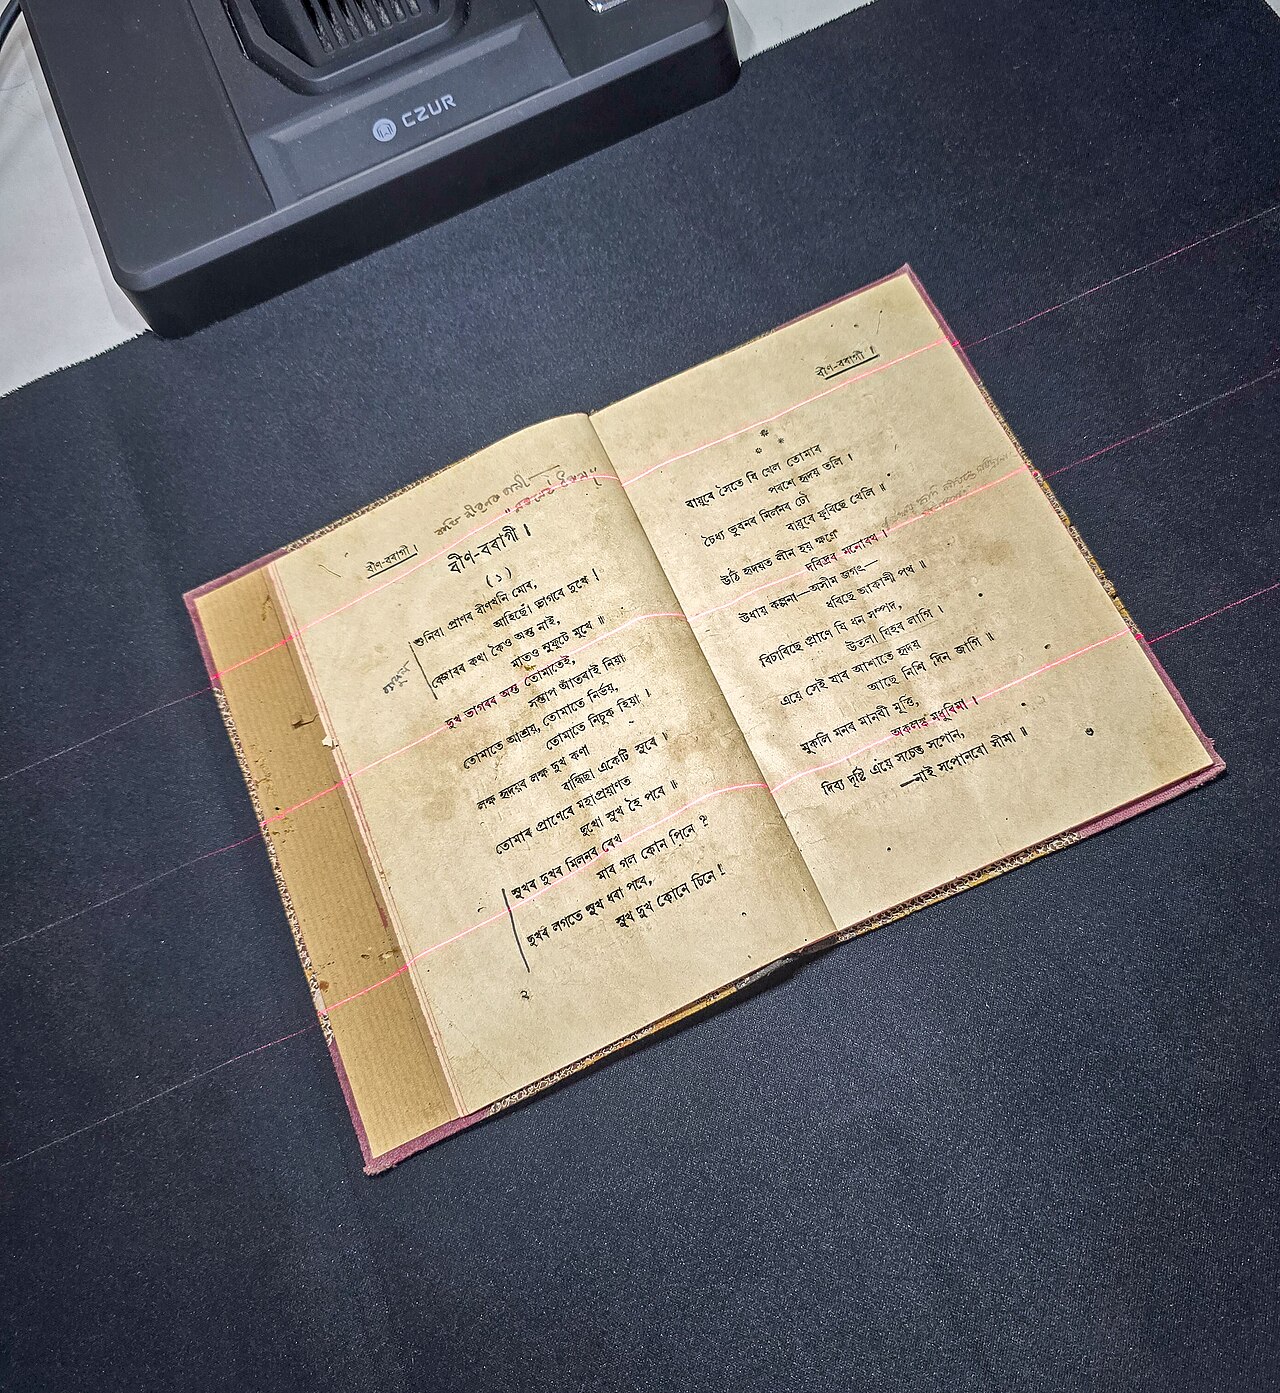 CZUR
বীণ-বৰাগী।
বীণ-বৰাগী।
(১)
শুনিবা প্ৰাণৰ বীণখনি মোৰ,
আহিছোঁ ভাগৰে দুখে!
বেজাৰৰ কথা কৈও অন্ত নাই,
মাতও নুফুটে মুখে॥
দুখ ভাগৰৰ অন্ত তোমাতেই,
সন্তাপ আঁতৰাই নিয়া
তোমাতে আশ্ৰয়, তোমাতে নিৰ্ভয়,
তোমাতে নিচুক হিয়া।
লক্ষ হৃদয়ৰ লক্ষ দুখ কণা
বান্ধিছা একেটি সুৰে।
তোমাৰ প্ৰাণেৰে মহাপ্ৰয়াণত
দুখো সুখ হৈ পৰে॥
সুখৰ দুখৰ মিলনৰ ৰেখ
মাৰ গল কোন পিনে?
দুখৰ লগতে সুখ ধৰা পৰে,
সুখ দুখ কোনে চিনে!
২
বীণ-বৰাগী।
* * *
বায়ুৰে সৈতে যি খেল তোমাৰ
পৰশে হৃদয় তলি।
চৈধ্য ভুবনৰ মিলনৰ ঢৌ
বায়ুৰে ফুৰিছে খেলি॥
উঠি হৃদয়ত লীন হয় ক্ষণে
দৰিদ্ৰৰ মনোৰথ।
উধায় কল্পনা—অসীম জগৎ—
ধৰিছে আকাশী পথ॥
বিচাৰিছে প্ৰাণে যি ধন সম্পদ,
উতলা যিহৰ লাগি।
এয়ে সেই যাৰ আশাতে হৃদয়
আছে নিশি দিন জাগি॥
মুকলি মনৰ মানবী মূৰ্ত্তি,
অকলৰ মধুৰিমা।
দিব্য দৃষ্টি এয়ে সচেত সপোন,
—নাই সপোনৰো সীমা॥
৩